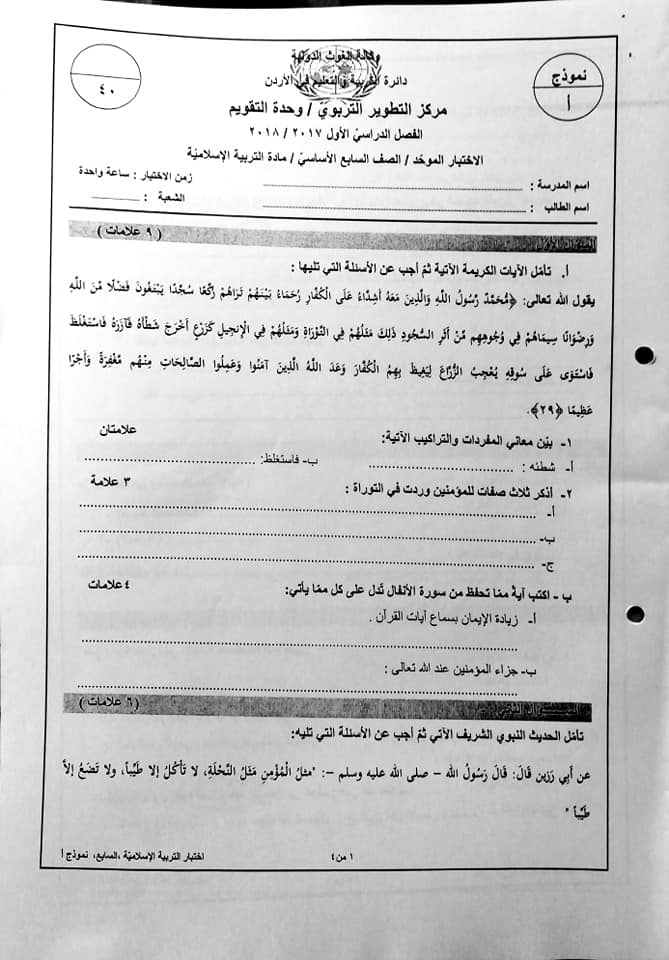 وكالة الغوث الدولية
دائرة التربية والتعليم في الأردن
مركز التطوير التربوي / وحدة التقويم
الفصل الدراسي الأول ٢٠١٧ / ٢٠١٨
الاختبار الموحّد / الصف السابع الأساسيّ / مادة التربية الإسلاميّة
نموذج
أ
٤٠
اسم المدرسة :
زمن الاختبار : ساعة واحدة
اسم الطالب :
الشعبة :
السؤال الأول ( ٩ علامات )
أ. تأمّل الآيات الكريمة الآتية ثمّ أجب عن الأسئلة التي تليها :
يقول الله تعالى: ﴿مُّحَمَّدٌ رَّسُولُ اللَّهِ وَالَّذِينَ مَعَهُ أَشِدَّاءُ عَلَى الْكُفَّارِ رُحَمَاءُ بَيْنَهُمْ تَرَاهُمْ رُكَّعًا سُجَّدًا يَبْتَغُونَ فَضْلًا مِّنَ اللَّهِ
وَرِضْوَانًا سِيمَاهُمْ فِي وُجُوهِهِم مِّنْ أَثَرِ السُّجُودِ ذَلِكَ مَثَلُهُمْ فِي التَّوْرَاةِ وَمَثَلُهُمْ فِي الْإِنجِيلِ كَزَرْعٍ أَخْرَجَ شَطْأَهُ فَآزَرَهُ فَاسْتَغْلَظَ
فَاسْتَوَى عَلَى سُوقِهِ يُعْجِبُ الزُّرَّاعَ لِيَغِيظَ بِهِمُ الْكُفَّارَ وَعَدَ اللَّهُ الَّذِينَ آمَنُوا وَعَمِلُوا الصَّالِحَاتِ مِنْهُم مَّغْفِرَةً وَأَجْرًا
عَظِيمًا ﴿٢٩﴾.
١- بيّن معاني المفردات والتراكيب الآتية: علامتان
أ- شطئه : ب- فاستغلظ:
٢- أذكر ثلاث صفات للمؤمنين وردت في التوراة : ٣ علامة
أ-
ب-
ج-
ب - اكتب آيةً ممّا تحفظ من سورة الأنفال تّدل على كل ممّا يأتي: ٤ علامات
أ- زيادة الإيمان بسماع آيات القرآن .
ب- جزاء المؤمنين عند الله تعالى :
الســـؤال الثاني ( ٦ علامات )
تأمّل الحديث النبوي الشريف الآتي ثمّ أجب عن الأسئلة التي تليه:
عن أَبِي رَزِين قَالَ: قَالَ رَسُولُ الله – صلى الله عليه وسلم –: "مثلُ الْمُؤْمِنِ مَثَلُ النَّحْلَةِ، لا تَأكُلُ إلا طَيِّباً، ولا تَضَعُ إلاَّ
طَيِّباً "
١ من ٤
اختبار التربية الإسلاميّة ،السابع، نموذج أ